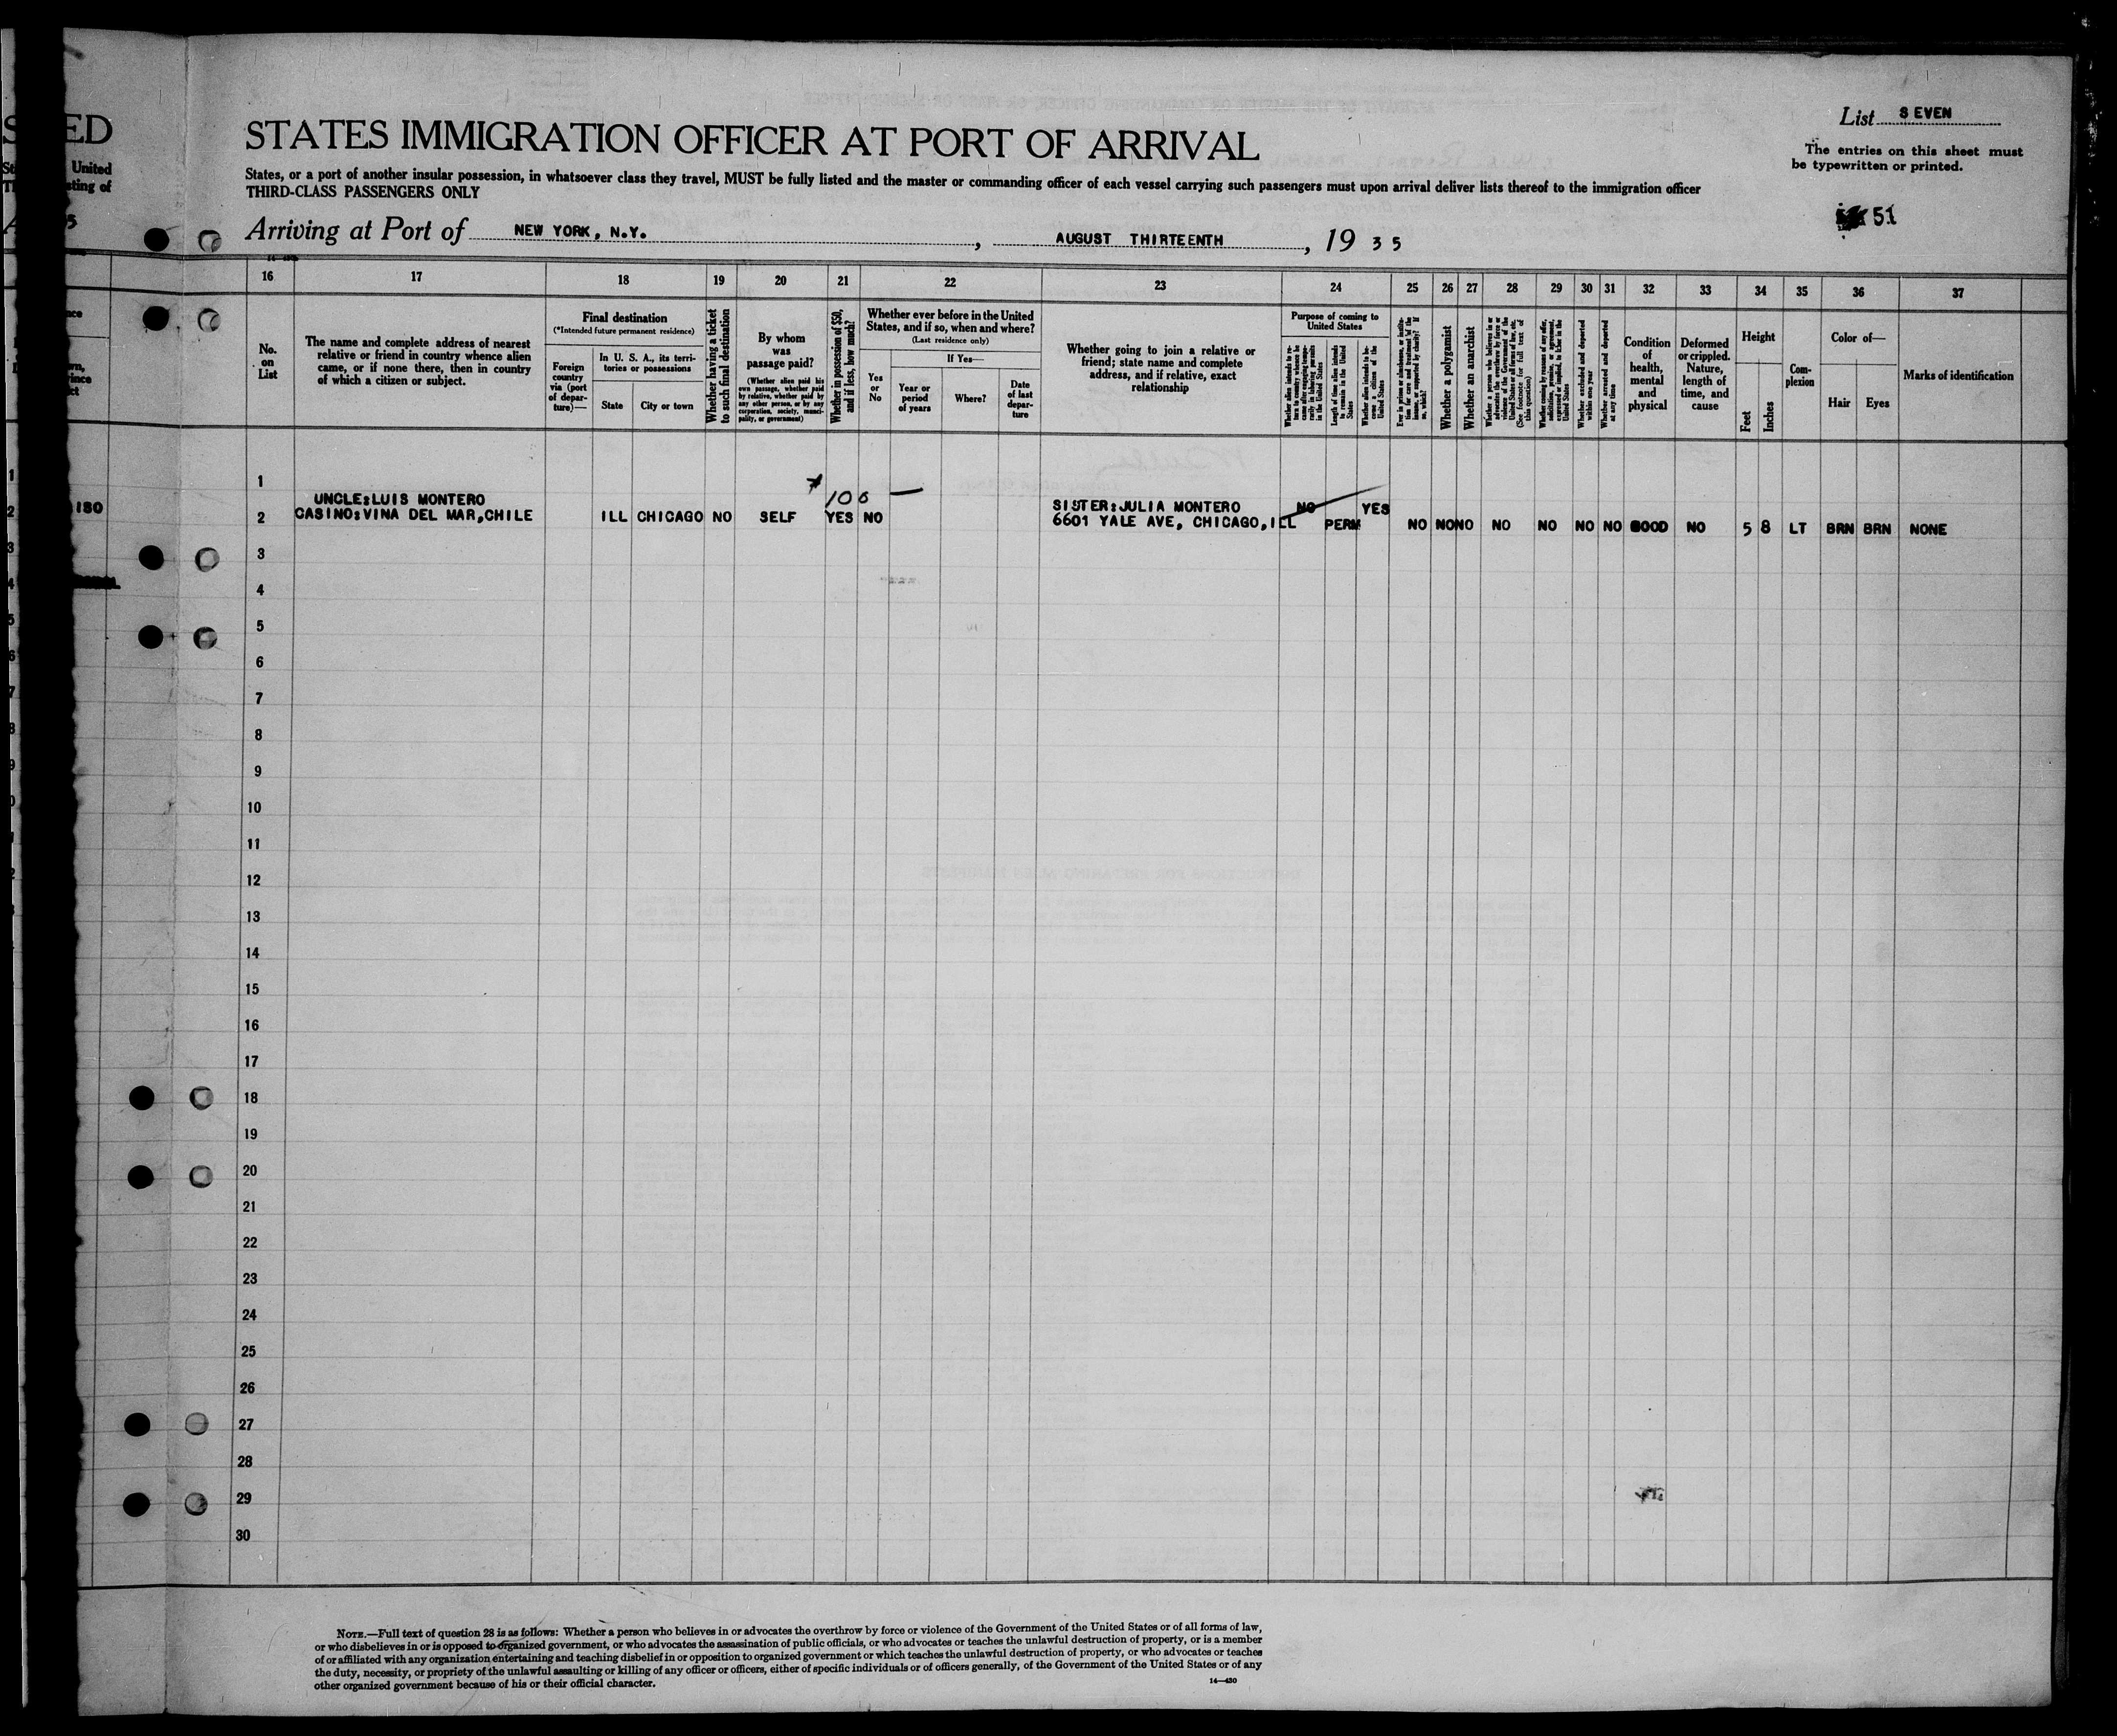 ED
United
sting of
STATES IMMIGRATION OFFICER AT PORT OF ARRIVAL
States, or a port of another insular possession, in whatsoever class they travel, MUST be fully listed and the master or commanding officer of each vessel carrying such passengers must upon arrival deliver lists thereof to the immigration officer
THIRD-CLASS PASSENGERS ONLY
Arriving at Port of NEW YORK, N.Y. , AUGUST THIRTEENTH , 19 3 5
List SEVEN
The entries on this sheet must
be typewritten or printed.
51
16 17 18 19 20 21 22 23 24 25 26 27 28 29 30 31 32 33 34 35 36 37
No.
on
List
The name and complete address of nearest
relative or friend in country whence alien
came, or if none there, then in country
of which a citizen or subject.
Final destination
(*Intended future permanent residence)
Foreign
country
via (port
of depar-
ture)—
In U. S. A., its terri-
tories or possessions
State
City or town
Whether having a ticket
to such final destination
By whom
was
passage paid?
(Whether alien paid his
own passage, whether paid
by relative, whether paid by
any other person, or by any
corporation, society, munici-
pality, or government)
Whether in possession of $50,
and if less, how much?
Whether ever before in the United
States, and if so, when and where?
(Last residence only)
Yes
or
No
If Yes—
Year or
period
of years
Where?
Date
of last
depar-
ture
Whether going to join a relative or
friend; state name and complete
address, and if relative, exact
relationship
Purpose of coming to
United States
Length of time alien intends
to remain in the United
States
Whether alien intends to be-
come a citizen of the
United States
Whether a polygamist
Whether an anarchist
Whether excluded and deported
within one year
Whether arrested and deported
at any time
Condition
of
health,
mental
and
physical
Deformed
or crippled.
Nature,
length of
time, and
cause
Height
Feet
Inches
Com-
plexion
Color of—
Hair
Eyes
Marks of identification
1
100 —
UNCLE:LUIS MONTERO SISTER:JULIA MONTERO NO YES
2 CASINO:VINA DEL MAR,CHILE ILL CHICAGO NO SELF YES NO 6601 YALE AVE, CHICAGO,ILL PERM NO NO NO NO NO NO NO GOOD NO 5 8 LT BRN BRN NONE
3
4
5
6
7
8
9
10
11
12
13
14
15
16
17
18
19
20
21
22
23
24
25
26
27
28
29
30
NOTE.—Full text of question 28 is as follows: Whether a person who believes in or advocates the overthrow by force or violence of the Government of the United States or of all forms of law,
or who disbelieves in or is opposed to organized government, or who advocates the assassination of public officials, or who advocates or teaches the unlawful destruction of property, or is a member
of or affiliated with any organization entertaining and teaching disbelief in or opposition to organized government or which teaches the unlawful destruction of property, or who advocates or teaches
the duty, necessity, or propriety of the unlawful assaulting or killing of any officer or officers, either of specific individuals or of officers generally, of the Government of the United States or of any
other organized government because of his or their official character.
14—430